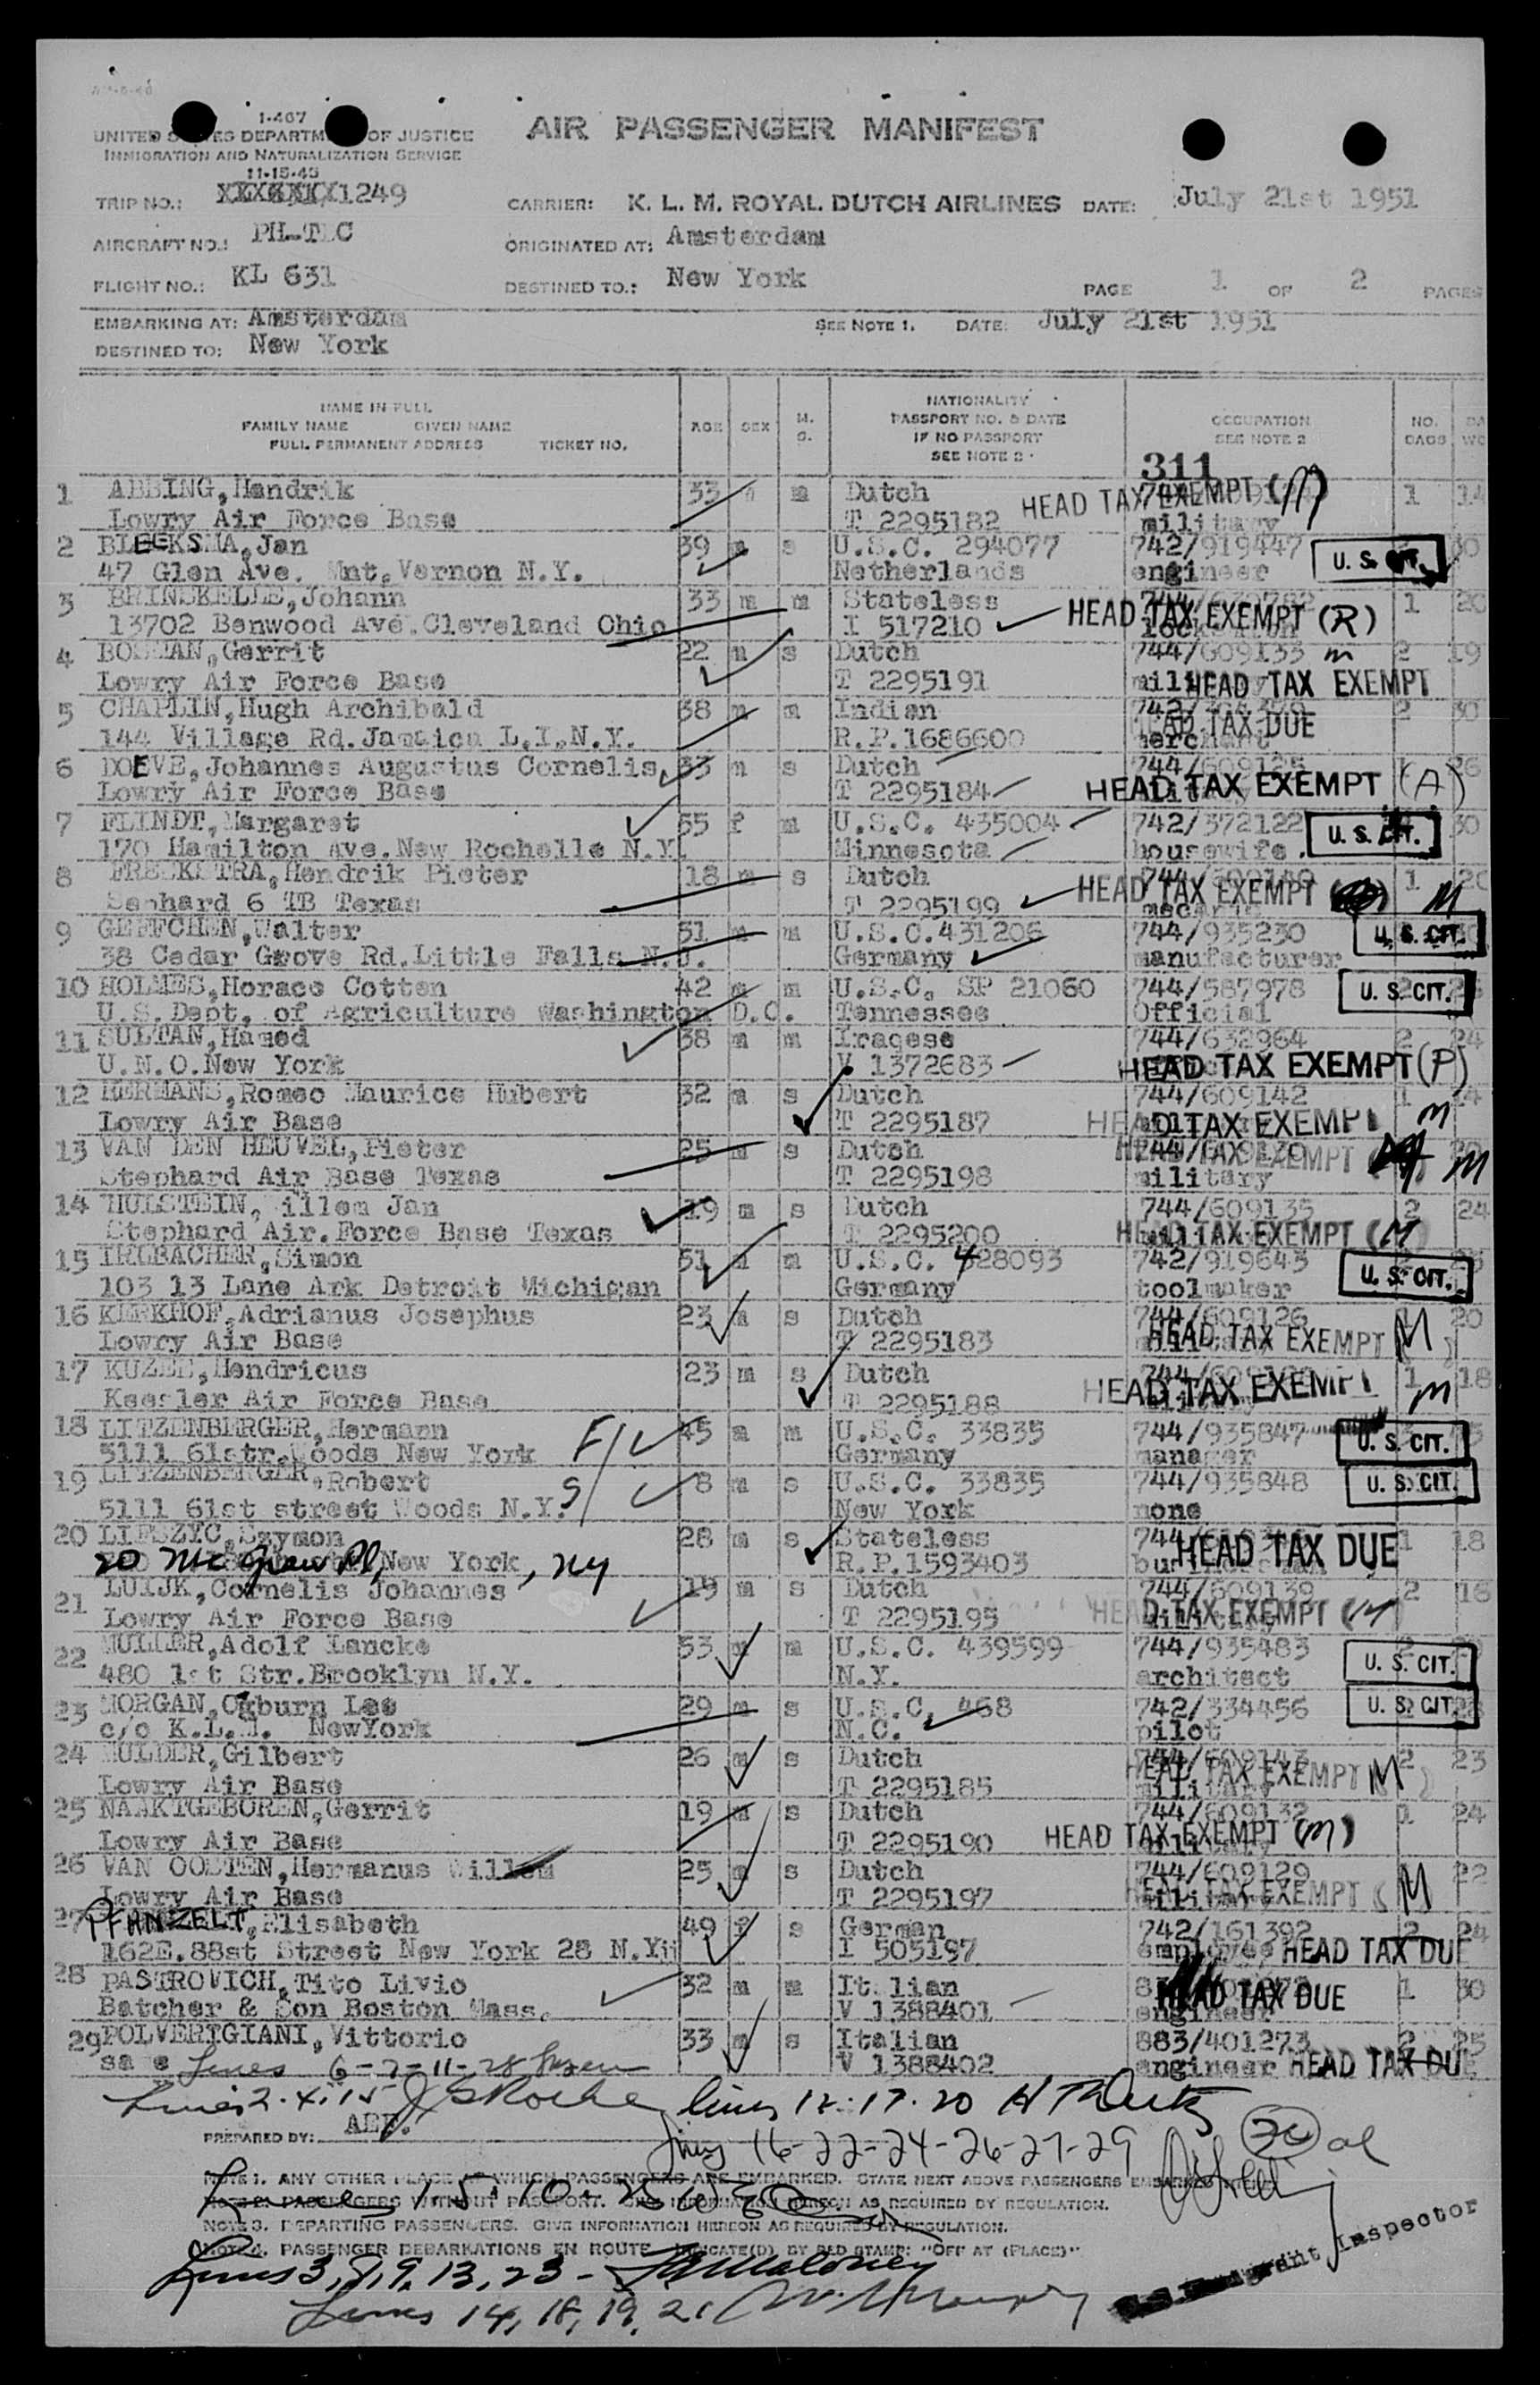 1-467
UNITED STATES DEPARTMENT OF JUSTICE
IMMIGRATION AND NATURALIZATION SERVICE
11-15-45
AIR PASSENGER MANIFEST
TRIP NO.: 1249
CARRIER: K. L. M. ROYAL DUTCH AIRLINES DATE: July 21st 1951
AIRCRAFT NO.: PH-TLC
ORIGINATED AT: Amsterdam
FLIGHT NO.: KL 631
DESTINED TO.: New York
PAGE 1 OF 2 PAGES
EMBARKING AT: Amsterdam
SEE NOTE 1. DATE: July 21st 1951
DESTINED TO: New York
NAME IN FULL
FAMILY NAME GIVEN NAME
FULL PERMANENT ADDRESS TICKET NO.
AGE SEX M. S.
NATIONALITY
PASSPORT NO. & DATE
IF NO PASSPORT
SEE NOTE 2
OCCUPATION
SEE NOTE 2
NO. BAGS
311
1 ABBING, Hendrik 33 m Dutch HEAD TAX EXEMPT (M) 1 14
Lowry Air Force Base T 2295182 military
2 BLEEKSMA, Jan 39 m s U.S.C. 294077 742/919447 U. S. CIT. 30
47 Glen Ave. Mnt. Vernon N.Y. Netherlands engineer
3 BRINSKELLE, Johann 33 m m Stateless HEAD TAX EXEMPT (R) 1 20
13702 Benwood Ave. Cleveland Ohio I 517210
4 BOSMAN, Gerrit 22 m s Dutch 744/609133 m 2 19
Lowry Air Force Base T 2295191 HEAD TAX EXEMPT
5 CHAPLIN, Hugh Archibald 38 m m Indian 2 30
144 Village Rd. Jamaica L.I. N.Y. R.P. 1686600 merchant HEAD TAX DUE
6 DOEVE, Johannes Augustus Cornelis 33 m s Dutch 744/609125 26
Lowry Air Force Base T 2295184 HEAD TAX EXEMPT (A)
7 FLINDT, Margaret 55 f m U.S.C. 435004 742/372122 U. S. CIT. 30
170 Hamilton Ave. New Rochelle N.Y. Minnesota housewife.
8 FREEKSTRA, Hendrik Pieter 18 m s Dutch HEAD TAX EXEMPT 1 20 M
Sephard 6 TB Texas T 2295199
9 GEFFCHEN, Walter 51 m m U.S.C. 431206 744/935230 U. S. CIT.
38 Cedar Grove Rd. Little Falls N.J. Germany manufacturer
10 HOLMES, Horace Cotten 42 m m U.S.C. SP 21060 744/587978 U. S. CIT.
U.S. Dept. of Agriculture Washington D.C. Tennessee Official
11 SULTAN, Hamed 38 m m Iraqese 744/632964 2 24
U.N.O. New York V 1372683 HEAD TAX EXEMPT (P)
12 HERMANS, Romeo Maurice Hubert 32 m s Dutch 744/609142 1 14
Lowry Air Base T 2295187 HEAD TAX EXEMPT m
13 VAN DEN HEUVEL, Pieter 25 m s Dutch HEAD TAX EXEMPT M
Stephard Air Base Texas T 2295198 military
14 HULSTEIN, illem Jan 19 m s Dutch 744/609135 2 24
Stephard Air. Force Base Texas T 2295200 HEAD TAX EXEMPT (M)
15 IRLBACHER, Simon 51 m m U.S.C. 428093 742/919643 U. S. CIT.
103 13 Lane Ark Detroit Michigan Germany toolmaker
16 KERKHOF, Adrianus Josephus 23 m s Dutch 744/609126 1 20
Lowry Air Base T 2295183 HEAD TAX EXEMPT M
17 KUZEE, Hendricus 23 m s Dutch 1 18
Keesler Air Force Base T 2295188 HEAD TAX EXEMPT m
18 LITZENBERGER, Hermann F/ 45 m m U.S.C. 33835 744/935847 U. S. CIT.
5111 61str. Woods New York Germany manager
19 LITZENBERGER, Robert S/ 8 m s U.S.C. 33835 744/935848 U. S. CIT.
5111 61st street Woods N.Y. New York none
20 LIPSZYC, Szymon 28 m s Stateless HEAD TAX DUE 1 18
20 McGraw Pl, New York, NY R.P. 1593403
21 LUIJK, Cornelis Johannes 19 m s Dutch 744/609139 2 16
Lowry Air Force Base T 2295195 HEAD TAX EXEMPT (M
22 MULLER, Adolf Lancke 53 m m U.S.C. 439599 744/935483 U. S. CIT.
480 1st Str. Brooklyn N.Y. N.Y. architect
23 MORGAN, Ogburn Lee 29 m s U.S.C. 468 742/334456 U. S. CIT.
c/o K.L.M. NewYork N.C. pilot
24 MULDER, Gilbert 26 m s Dutch 744/609143 2 23
Lowry Air Base T 2295185 military HEAD TAX EXEMPT M
25 NAAKTGEBOREN, Gerrit 19 m s Dutch 744/609132 1 24
Lowry Air Base T 2295190 HEAD TAX EXEMPT (M)
26 VAN OOSTEN, Hermanus Willem 25 m s Dutch 744/609129 22
Lowry Air Base T 2295197 military HEAD TAX EXEMPT M
27 PFANZELT, Elisabeth 49 f s German 742/161392 2 24
162E. 88st Street New York 28 N.Y. I 505197 employee HEAD TAX DUE
28 PASTROVICH, Tito Livio 32 m m Italian 1 30
Batcher & Son Boston Mass. V 1388401 engineer HEAD TAX DUE
29 POLVERIGIANI, Vittorio 33 m s Italian 883/401273 2 25
same V 1388402 engineer HEAD TAX DUE
Lines 6-7-11-28
Lines 2.4.15 J S Roche lines 12.17.20
PREPARED BY:
lines 16-22-24-26-27-29
NOTE 1. ANY OTHER PLACE AT WHICH PASSENGERS ARE EMBARKED. STATE NEXT ABOVE PASSENGERS EMBARKED
Lines 1.5.10-25
NOTE 2. PASSENGERS WITHOUT PASSPORT. GIVE INFORMATION HEREON AS REQUIRED BY REGULATION.
NOTE 3. DEPARTING PASSENGERS. GIVE INFORMATION HEREON AS REQUIRED BY REGULATION.
NOTE 4. PASSENGER DEBARKATIONS EN ROUTE INDICATE(D) BY RED STAMP: "OFF AT (PLACE)"
Lines 3, 8, 9, 13, 23 - Maloney
Lines 14, 18, 19, 21
Immigrant Inspector